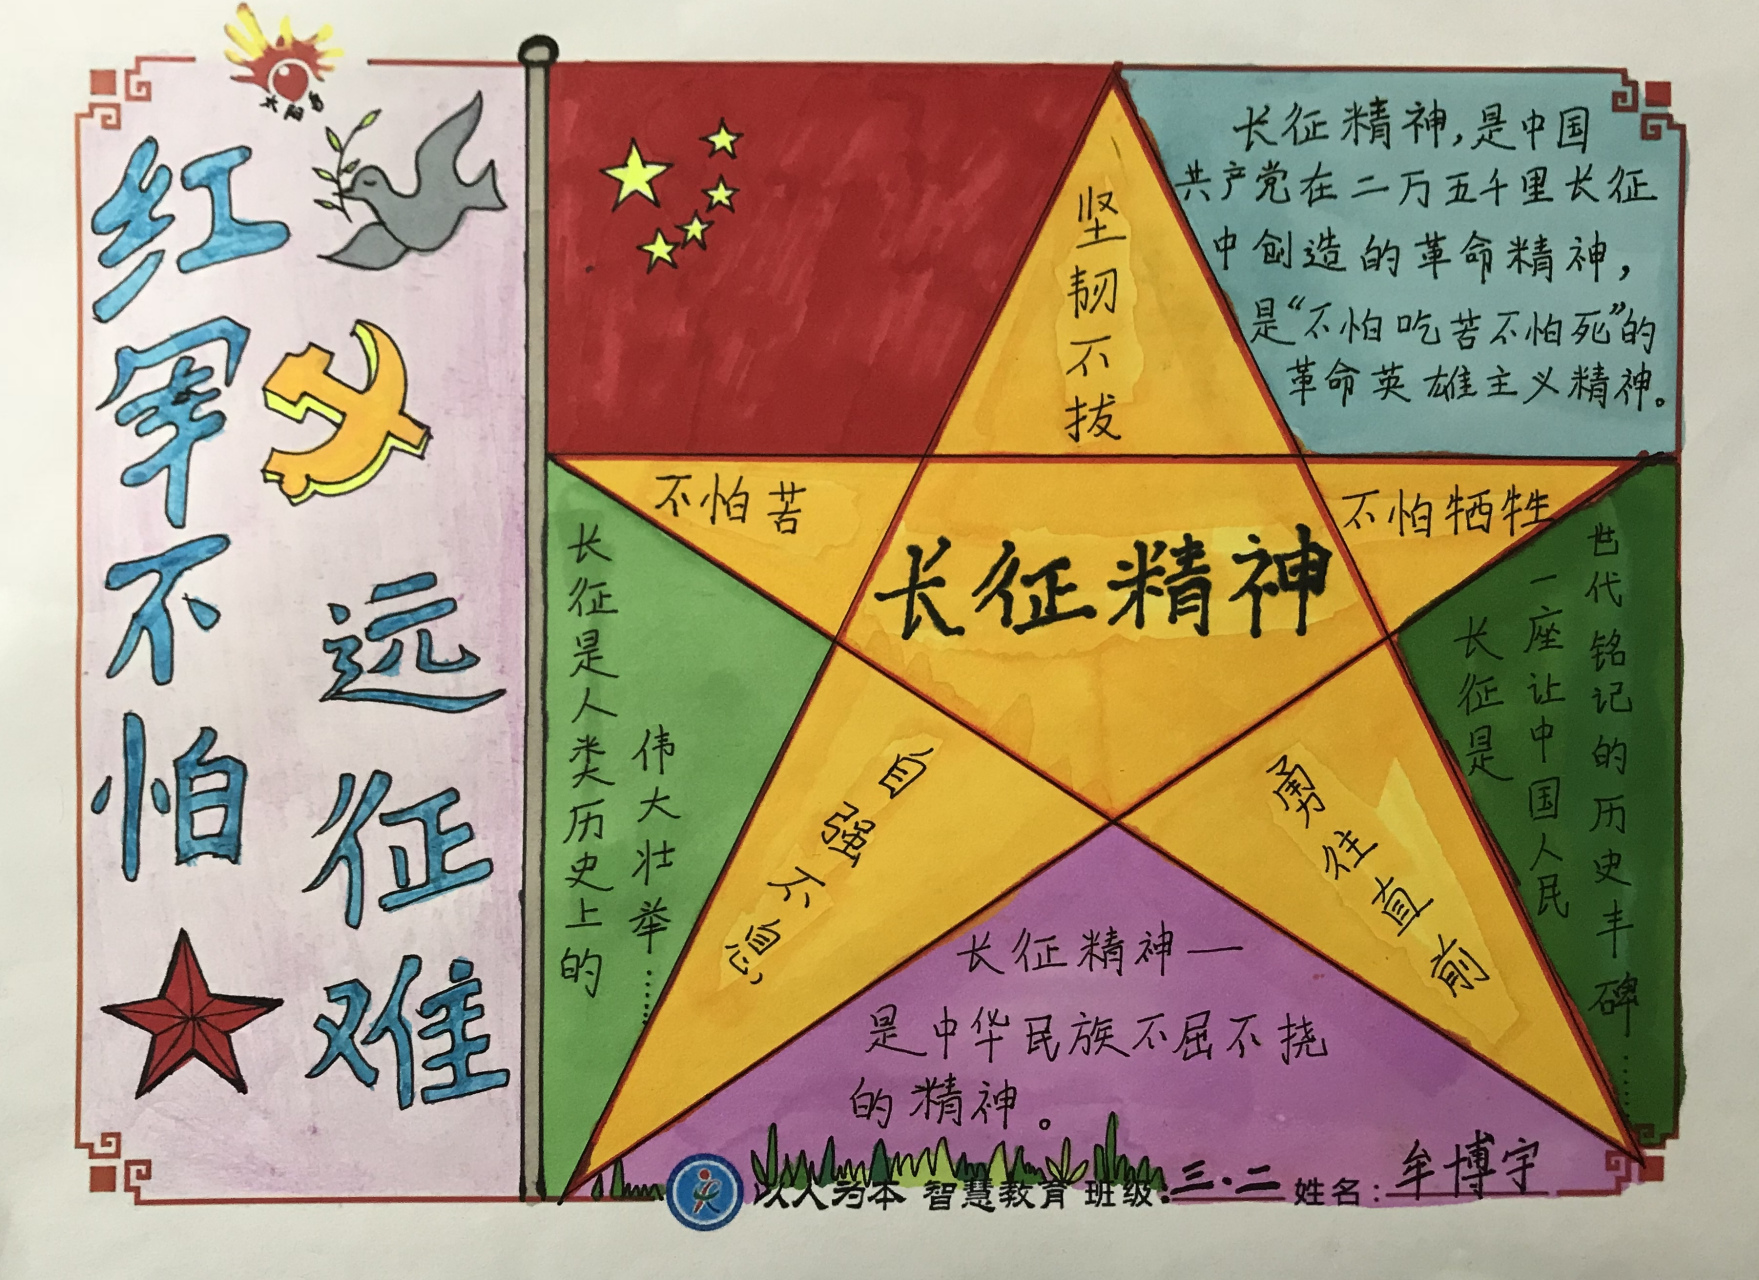 太阳岛
红军不怕
远征难
长征精神,是中国
共产党在二万五千里长征
中创造的革命精神,
是“不怕吃苦不怕死”的
革命英雄主义精神。
坚韧不拔
不怕苦
不怕牺牲
长征精神
自强不息
勇往直前
长征是人类历史上的
伟大壮举……
长征是
一座让中国人民
世代铭记的历史丰碑……
长征精神—
是中华民族不屈不挠
的精神。
以人为本 智慧教育 班级:三.二 姓名:牟博宇